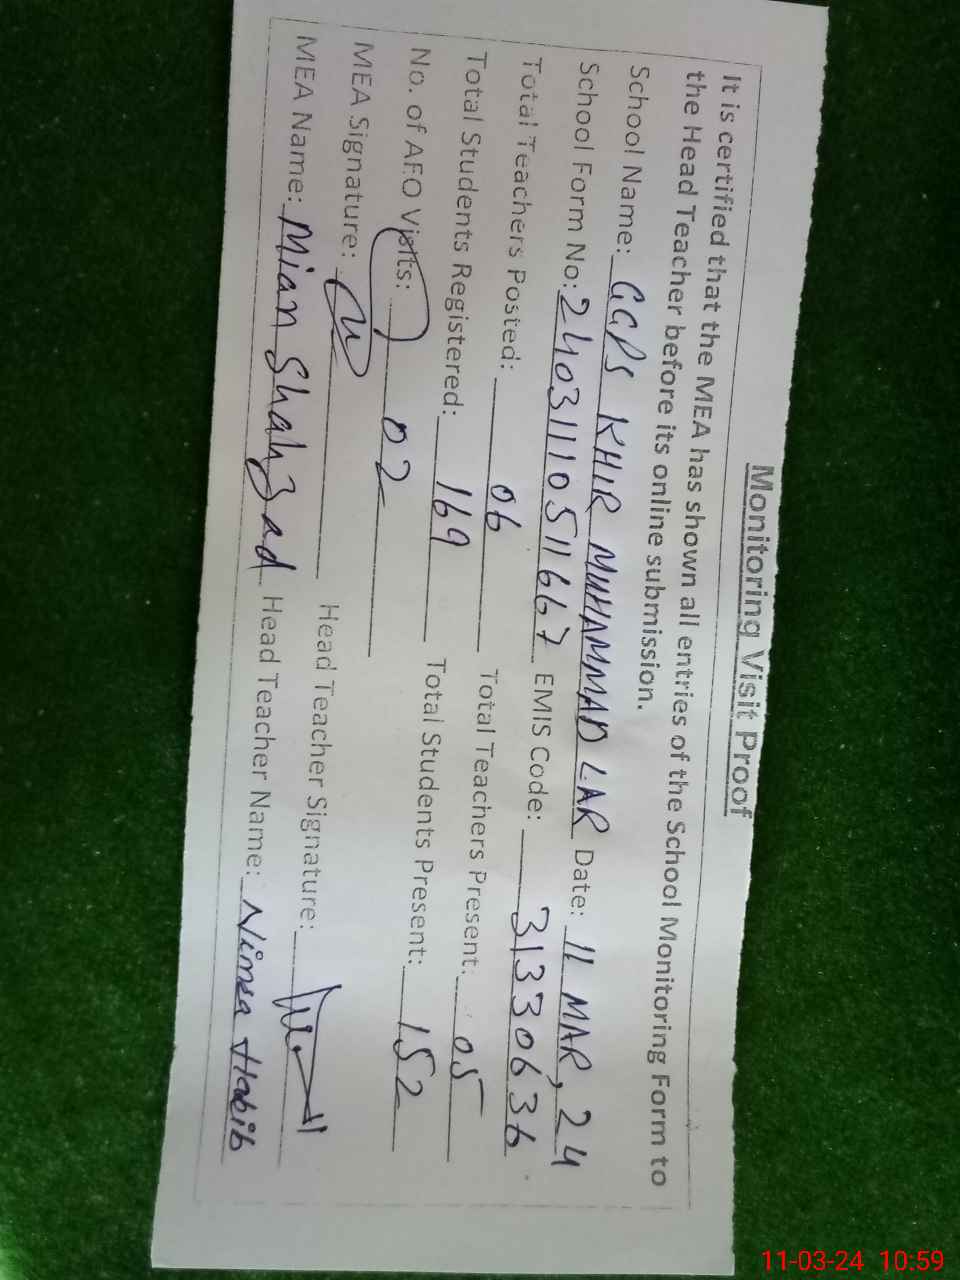 Monitoring Visit Proof
It is certified that the MEA has shown all entries of the School Monitoring Form to
the Head Teacher before its online submission.
School Name: GGPS KHIR MUHAMMAD LAR Date: 11 MAR, 24
School Form No: 24031110511667 EMIS Code: 31330636
Total Teachers Posted: 06 Total Teachers Present: 05
Total Students Registered: 169 Total Students Present: 152
No. of AEO Visits: 02
MEA Signature: Head Teacher Signature:
MEA Name: Mian Shahzad Head Teacher Name: Nimra Habib
11-03-24 10:59